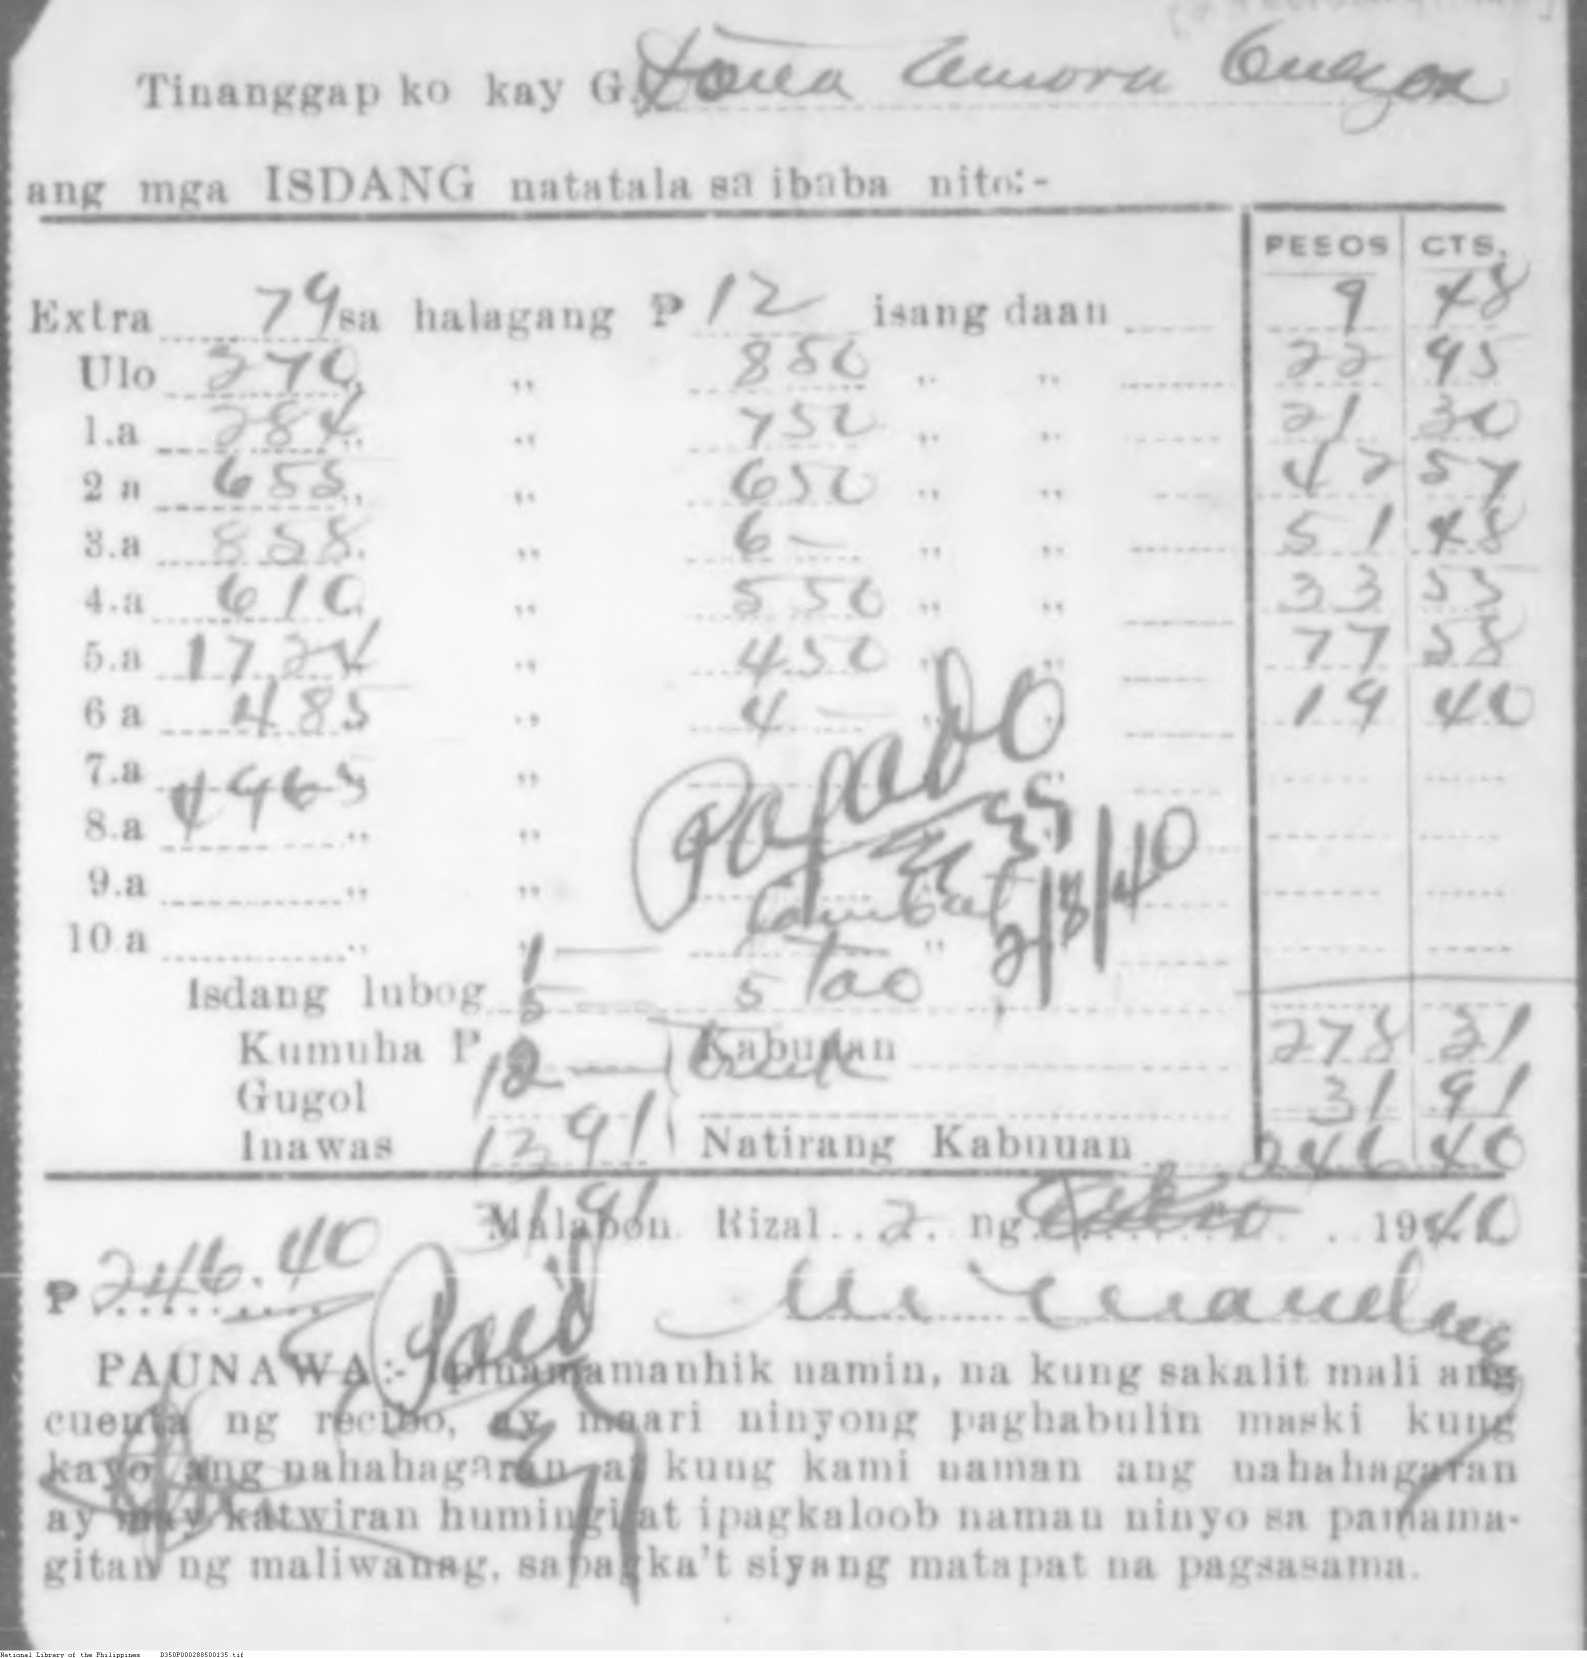 Tinanggap ko kay G. Dona Aurora Quezon
ang mga ISDANG natatala sa ibaba nito:-
PESOS CTS.
Extra 79 sa halagang P 12 isang daan 9 48
Ulo 270 ,, 850 ,, ,, 22 95
1.a 284 ,, ,, 750 ,, ,, 21 30
2 a 655 ,, ,, 650 ,, ,, 42 57
3.a 858 ,, 6 — ,, ,, 51 48
4.a 610 ,, 550 ,, ,, 33 55
5.a 1724 ,, 450 ,, ,, 77 58
6 a 485 ,, 4 — ,, ,, 19 40
7.a 4965 ,,
8.a ,, ,,
9.a ,, ,,
10 a ,, 1 — ,,
Pagado
2/8/40
Isdang lubog 5 — 5 Tao
Kumuha P 12 — Kabuuan 278 31
Gugol 31 91
Inawas 13 91 Natirang Kabuuan 246 40
31 91
Malabon Rizal 2 ng 1940
P 246.40
Paid
PAUNAWA:- Ipinamamanhik namin, na kung sakalit mali ang
cuenta ng recibo, ay maari ninyong paghabulin maski kung
kayo ang nahahagaran at kung kami naman ang nahahagaran
ay may katwiran humingi at ipagkaloob naman ninyo sa pamama-
gitan ng maliwanag, sapagka't siyang matapat na pagsasama.
National Library of the Philippines D350P000288500135.tif